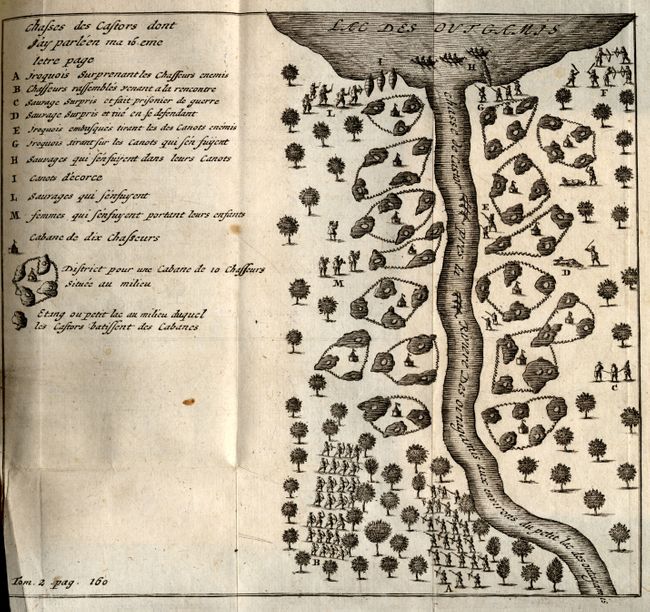 Chasses des Castors dont
J'ay parléen ma 16.eme
letre page
A Iroquois Surprenant les Chasseurs enemis
B Chasseurs rassembles venant a la rencontre
C Sauvage Surpris et fait prisonier de guerre
D Sauvage Surpris et tué en se defendant
E Iroquois embusques tirant les des Canots enemis
G Iroquois tirant sur les Canots qui s'en fuyent
H Sauvages qui s'enfuyent dans leurs Canots
I Canots d'ecorce
L Sauvages qui s'enfuyent
M femmes qui s'enfuyent portant leurs enfants
Cabane de dix Chasseurs
District pour une Cabane de 10 Chasseurs
Située au milieu
Etang ou petit lac au milieu duquel
les Castors batissent des Cabanes
LAC DES OUTGAMIS
I
H
L
F
E
D
M
C
B
A
Riviere Des
aux environs du petit lac des
Tom. 2 pag. 160